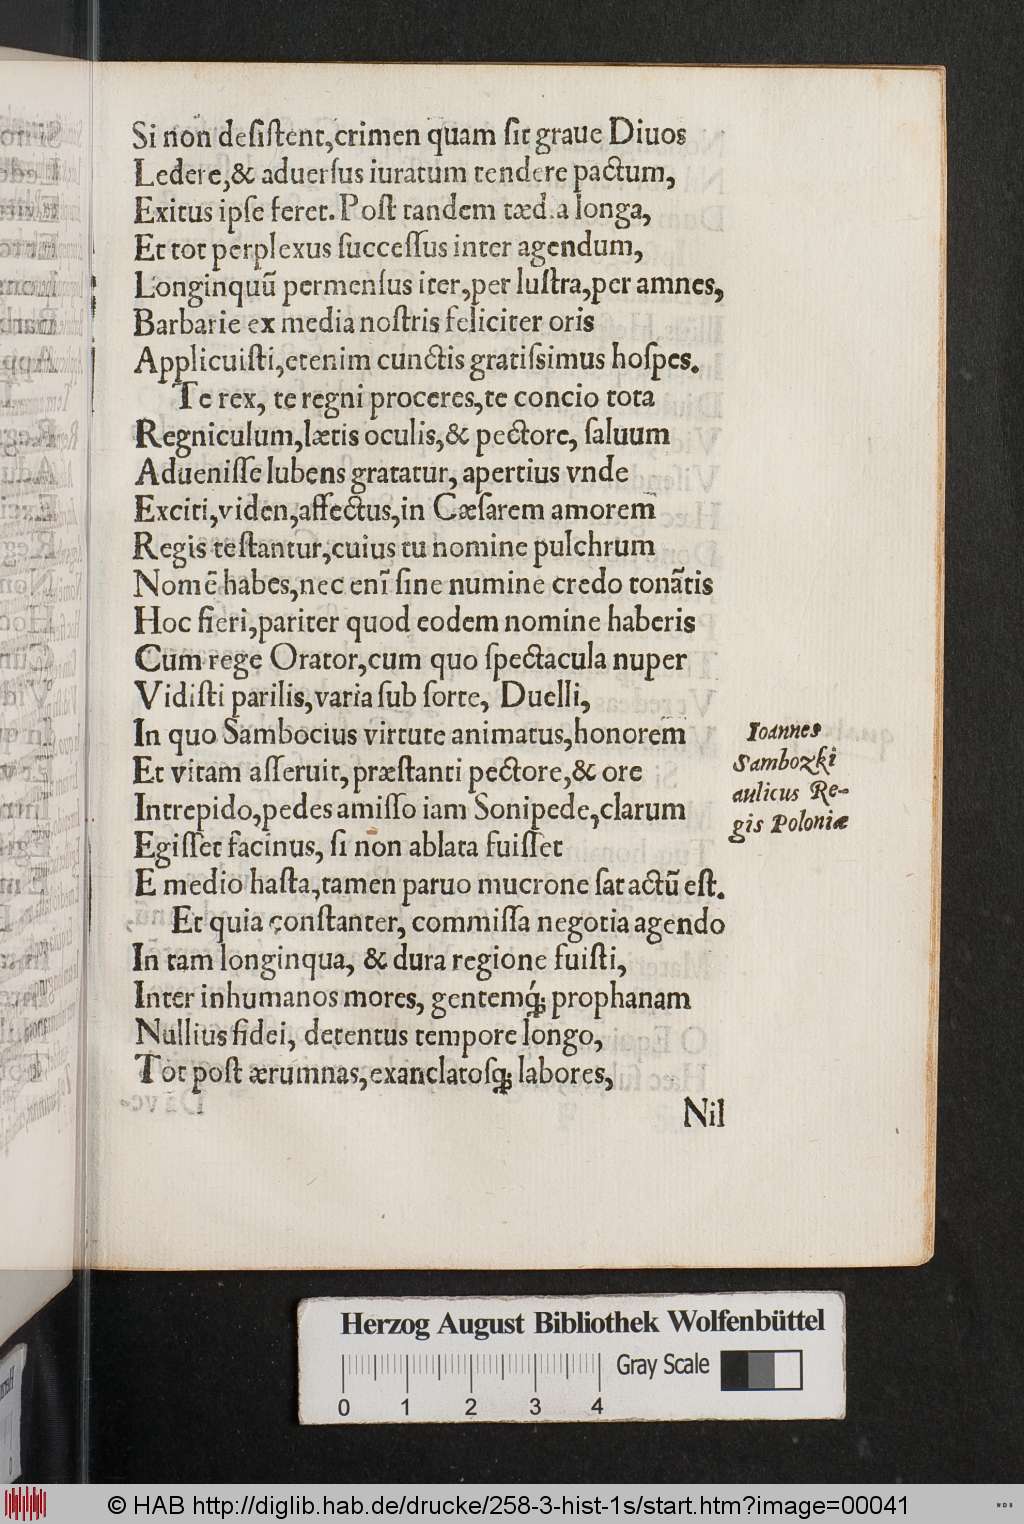 Si non desiſtent,crimen quam ſit graue Diuos
Ledere,& aduerſus iuratum tendere pactum,
Exitus ipſe feret. Poſt tandem tæd.a longa,
Et tot perplexus ſucceſſus inter agendum,
Longinquũ permenſus iter,per luſtra,per amnes,
Barbarie ex media noſtris feliciter oris
Applicuiſti,etenim cunctis gratiſsimus hoſpes.
Te rex, te regni proceres,te concio tota
Regniculum,lætis oculis,& pectore, ſaluum
Adueniſſe lubens gratatur, apertius vnde
Exciti,viden,affectus,in Cæſarem amorem
Regis teſtantur,cuius tu nomine pulchrum
Nomẽ habes,nec enĩ ſine numine credo tonãtis
Hoc fieri,pariter quod eodem nomine haberis
Cum rege Orator,cum quo ſpectacula nuper
Vidiſti parilis,varia ſub ſorte, Duelli,
In quo Sambocius virtute animatus,honorem
Et vitam aſſeruit,præſtanti pectore,& ore
Intrepido,pedes amiſſo iam Sonipede,clarum
Egiſſet facinus, ſi non ablata fuiſſet
E medio haſta,tamen paruo mucrone ſat actũ eſt.
Ioannes
Sambozki
aulicus Re-
gis Poloniæ
Et quia conſtanter, commiſſa negotia agendo
In tam longinqua, & dura regione fuiſti,
Inter inhumanos mores, gentemq́; prophanam
Nullius fidei, detentus tempore longo,
Tot poſt ærumnas,exanclatoſq; labores,
Nil
Herzog August Bibliothek Wolfenbüttel
Gray Scale
0 1 2 3 4
© HAB http://diglib.hab.de/drucke/258-3-hist-1s/start.htm?image=00041